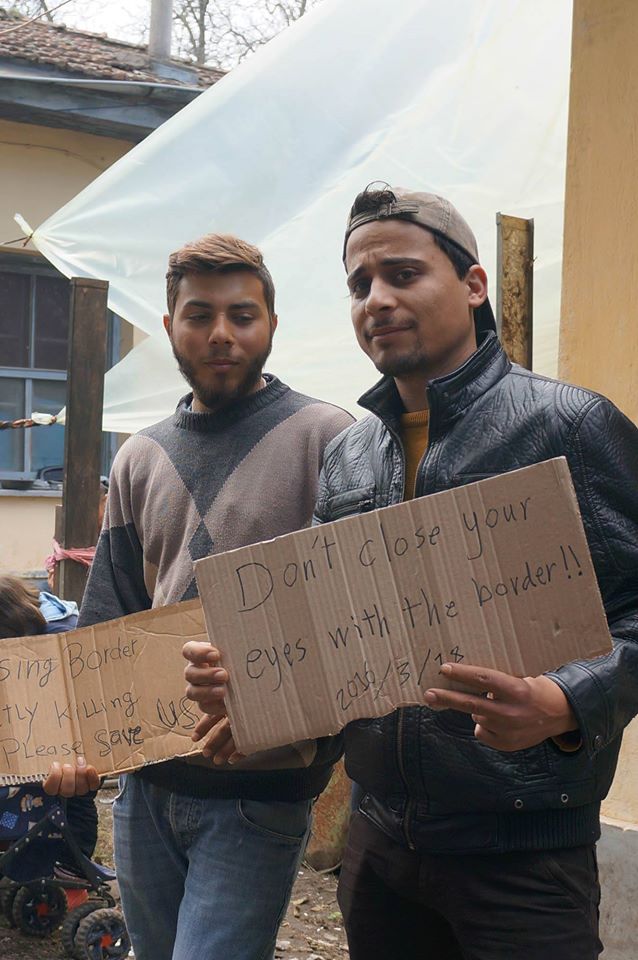 sing Border
tly Killing
Please save US
Don't close your
eyes with the border!!
2016/3/18